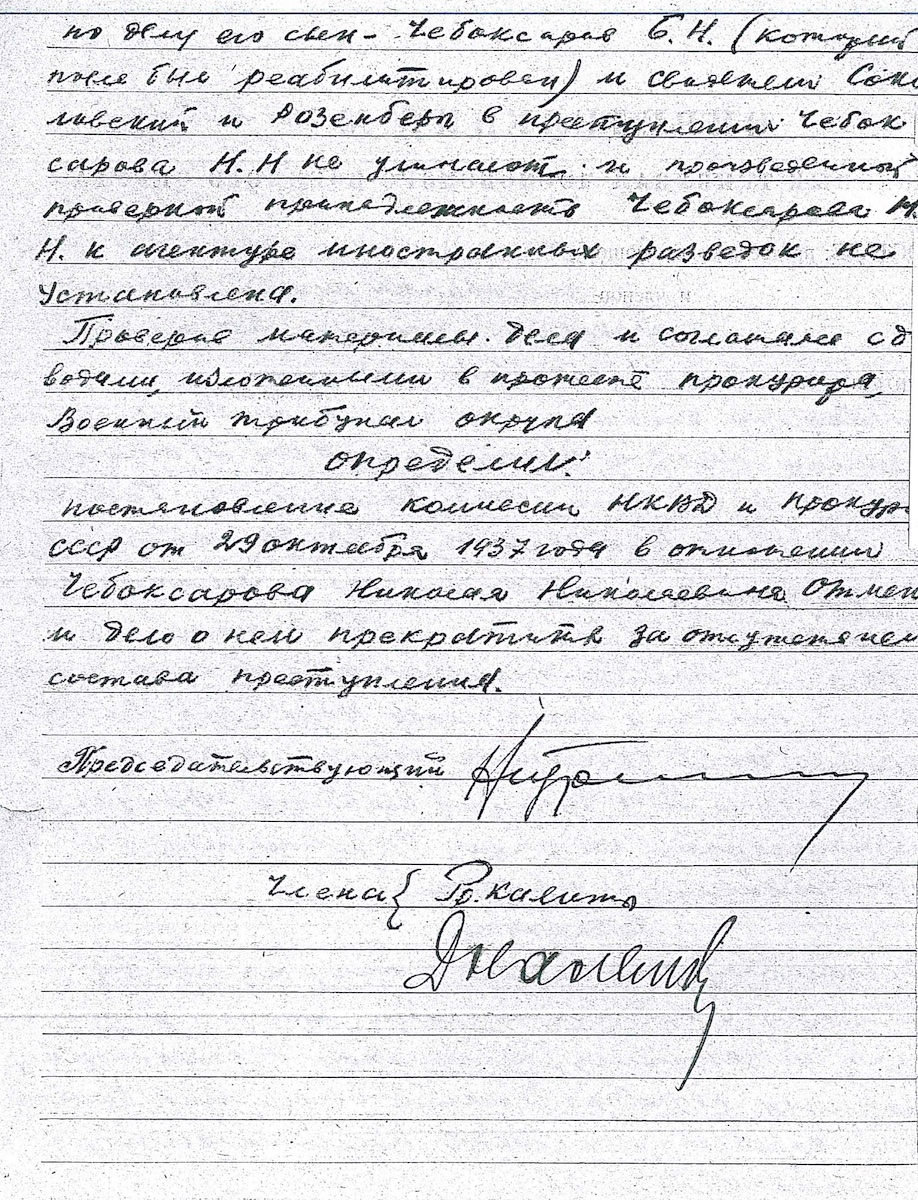 по делу его сын - Чебоксаров Б.Н. (который
после был реабилитирован) и свидетели Соко
ловский и Розенберг в преступлении Чебок
сарова Н.Н не уличают и произведенной
проверкой принадлежность Чебоксарова Н.
Н. к агентуре иностранных разведок не
установлена.
Проверив материалы дела и соглашаясь с д
водами, изложенными в протесте прокурора,
Военный трибунал округа
определил:
постановление комиссии НКВД и Прокур
СССР от 29 октября 1937 года в отношении
Чебоксарова Николая Николаевича отмен
и дело о нем прекратить за отсутствием
состава преступления.
Председательствующий
Члена {